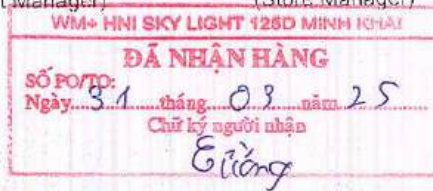 (Store Manager)
WM+ HNI SKY LIGHT 125D MINH KHAI
ĐÃ NHẬN HÀNG
SỐ PO/TO:
Ngày 31 tháng 03 năm 25
Chữ ký người nhận